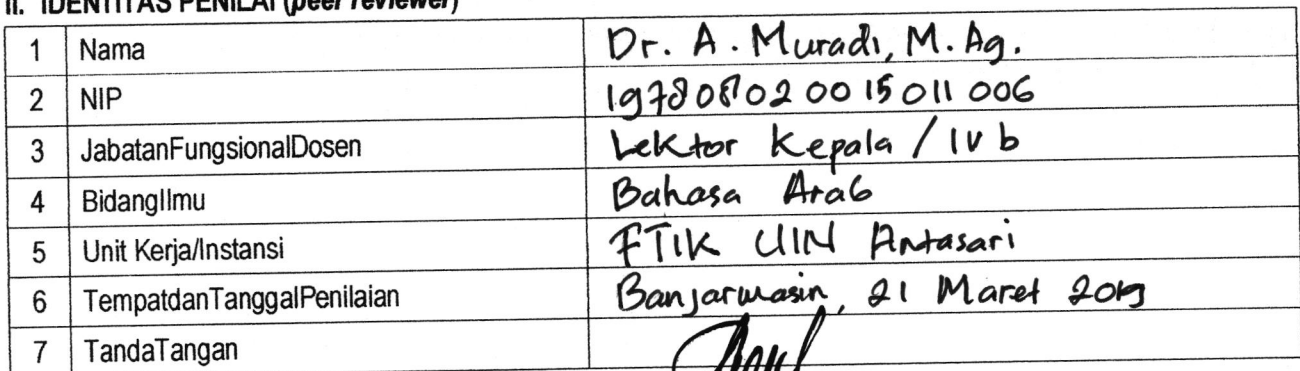 II. IDENTITAS PENILAI (peer reviewer)
1 Nama Dr. A. Muradi, M.Ag.
2 NIP 19780802 00 15 011 006
3 JabatanFungsionalDosen Lektor Kepala / IV b
4 BidangIlmu Bahasa Arab
5 Unit Kerja/Instansi FTIK UIN Antasari
6 TempatdanTanggalPenilaian Banjarmasin, 21 Maret 2019
7 TandaTangan